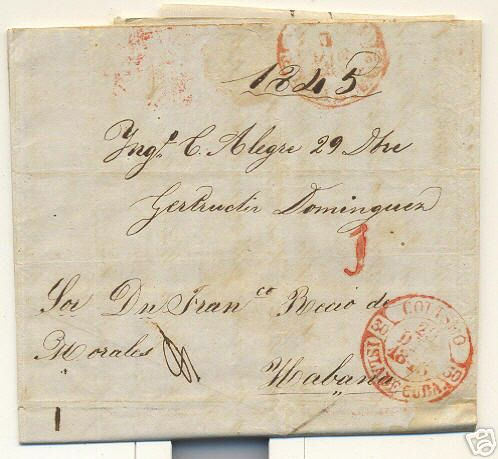 1845
Ingº C. Alegre 29 Dbre
Gertrudis Dominguez
1
Sor Dn Franco Recio de
Morales
Habana
COLISEO
30 30
ISLA DE CUBA